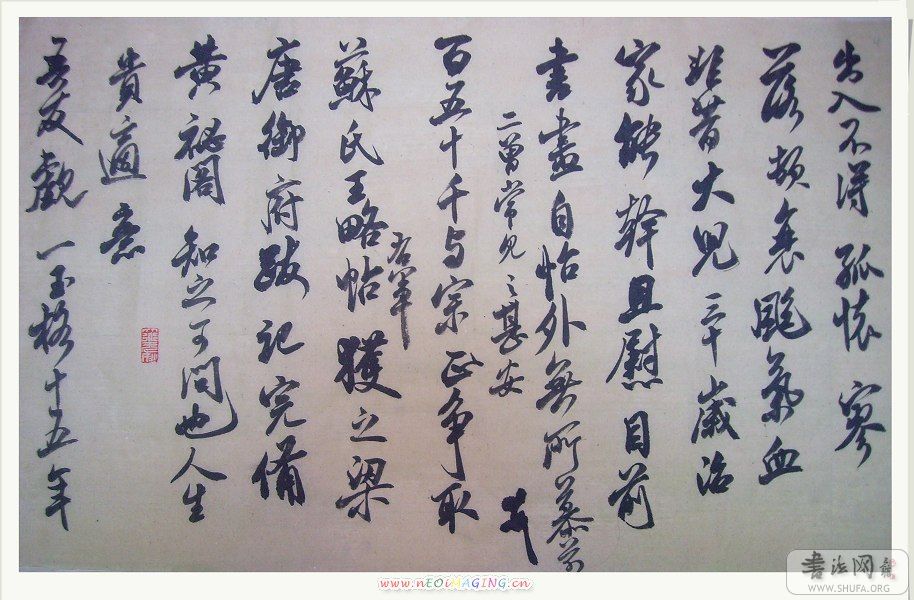 出入不得孤懷寥
落頓衰颯氣血
非昔大兒三十歲治
家能幹且慰目前
書畫自怡外無所慕芾
二曾常見之甚安 芾
百五十千与宗正爭取
右軍
蘇氏王略帖獲之梁
唐御府跋記完備
黄祕閣知之可問也人生
貴適意
吾友觀一玉格十五年
www.nEOiMAGING.cn
书法网
WWW.SHUFA.ORG